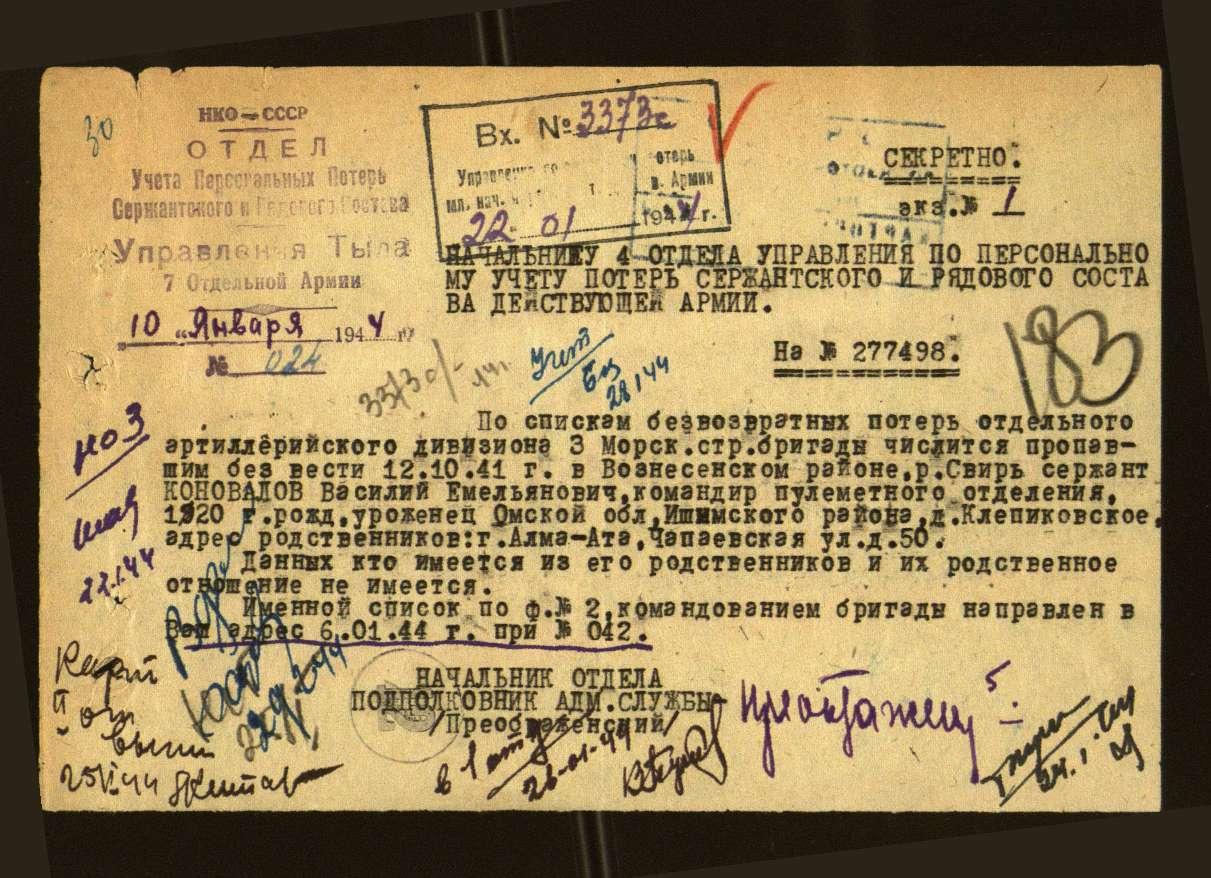 30
НКО-СССР
ОТДЕЛ
Учета Персональных Потерь
Сержантского и Рядового Состава
Управления Тыла
7 Отдельной Армии
10 "Января 1944 г.
№ 024
Вх. № 3373с
Управление по потерь
мл. нач. и в. Армии
22 01 1944 г.
СЕКРЕТНО.
экз.№ 1
НАЧАЛЬНИКУ 4 ОТДЕЛА УПРАВЛЕНИЯ ПО ПЕРСОНАЛЬНО
МУ УЧЕТУ ПОТЕРЬ СЕРЖАНТСКОГО И РЯДОВОГО СОСТА
ВА ДЕЙСТВУЮЩЕЙ АРМИИ.
На № 277498.
183
28 1 44
По спискам безвозвратных потерь отдельного
артиллерийского дивизиона 3 Морск.стр.бригады числится пропав-
шим без вести 12.10.41 г. в Вознесенском районе,р.Свирь сержант
КОНОВАЛОВ Василий Емельянович,командир пулеметного отделения,
1920 г.рожд,уроженец Омской обл,Ишимского района,д.Клепиковское,
адрес родственников:г.Алма-Ата,Чапаевская ул.д.50.
Данных кто имеется из его родственников и их родственное
отношение не имеется.
Именной список по ф.№ 2,командованием бригады направлен в
Ваш адрес 6.01.44 г. при № 042.
но 3
22.1.44
НАЧАЛЬНИК ОТДЕЛА
ПОДПОЛКОВНИК АДМ.СЛУЖБЫ-
/Преображенский/
25/I 44
26-01-44
24.1.